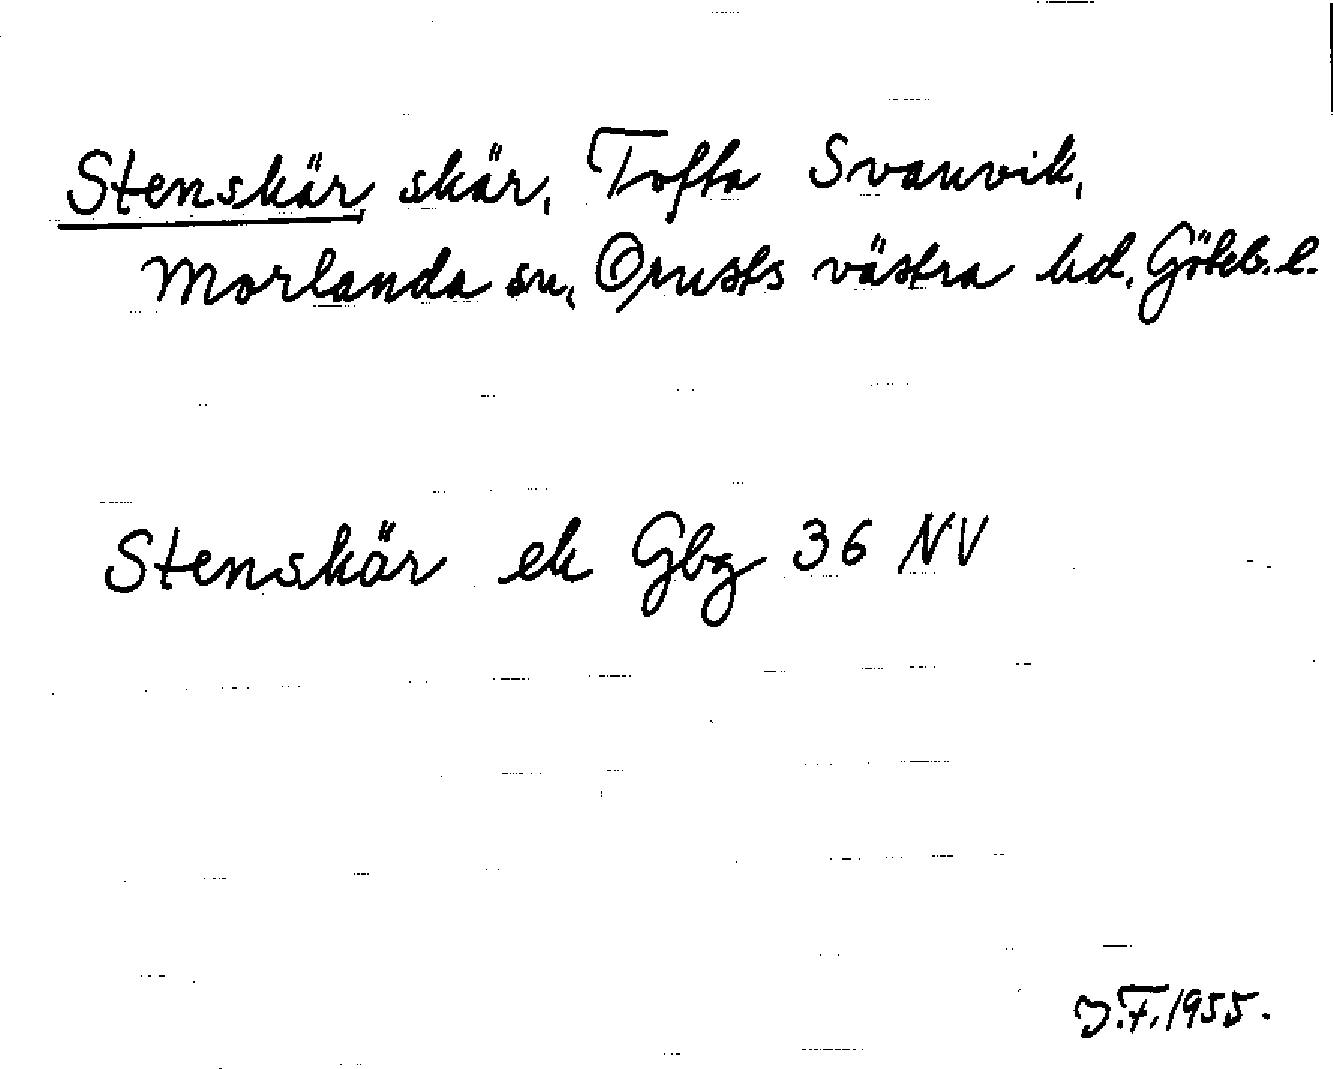 Stenskär, skär, Tofta Svanvik,
Morlanda sn, Orusts västra hd. Götebs. l.
Stenskär ek Gbg 36 NV
J.F. 1955.